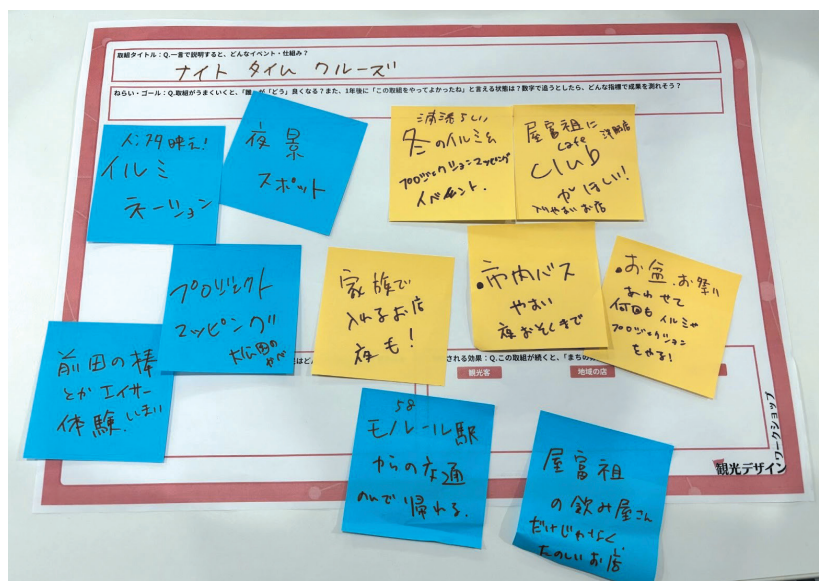 取組タイトル：Q.一言で説明すると、どんなイベント・仕組み？
ナイト タイム クルーズ
ねらい・ゴール：Q.取組がうまくいくと、「誰が「どう」良くなる？また、1年後に「この取組をやってよかったね」と言える状態は？数字で追うとしたら、どんな指標で成果を測れそう？
インスタ映え！
イルミ
ネーション
夜景
スポット
浦添らしい
冬のイルミ&
プロジェクションマッピング
イベント.
屋富祖に
cafe
Club
がほしい！
お店
プロジェクト
マッピング
家族で
入れるお店
夜も！
・市内バス
やすい
夜おそくまで
・お盆.お祭り
あわせて
何回も イルミや
プロジェクション
をやる！
前田の棒
とか エイサー
体験
される効果：Q.この取組が続くと、「まちの
観光客
地域の店
58
モノレール駅
からの交通
のんで帰れる.
屋富祖
の飲み屋さん
だけじゃなく
たのしいお店
観光デザイン
ワークショップ